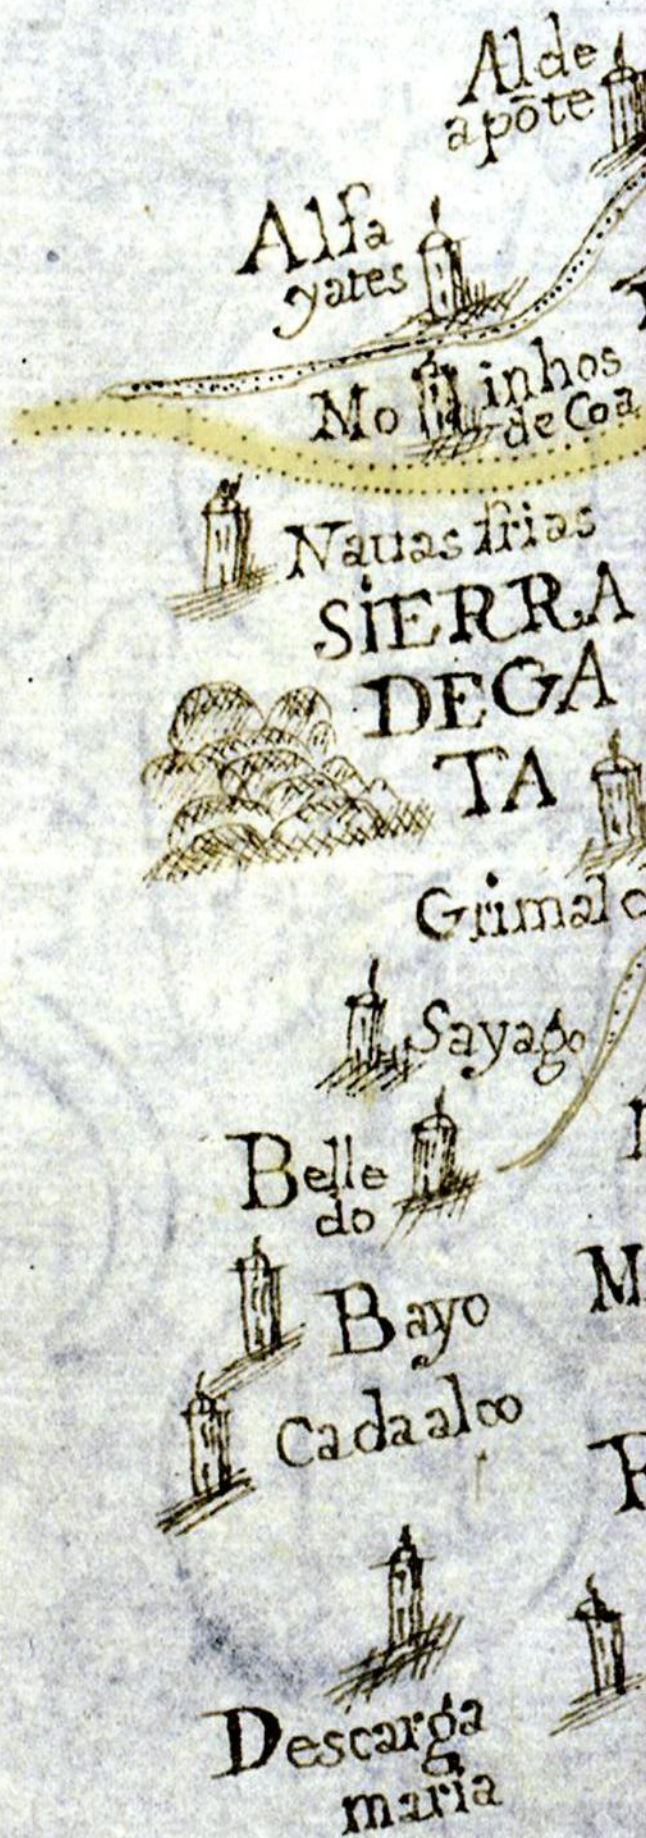 Alde
apõte
Alfa
yates
Molinhos
de Coa
Nauasfrias
SiERRA
DEGA
TA
Grimal
Sayago
Belle
do
Bayo
Cadaalso
Descarga
maria